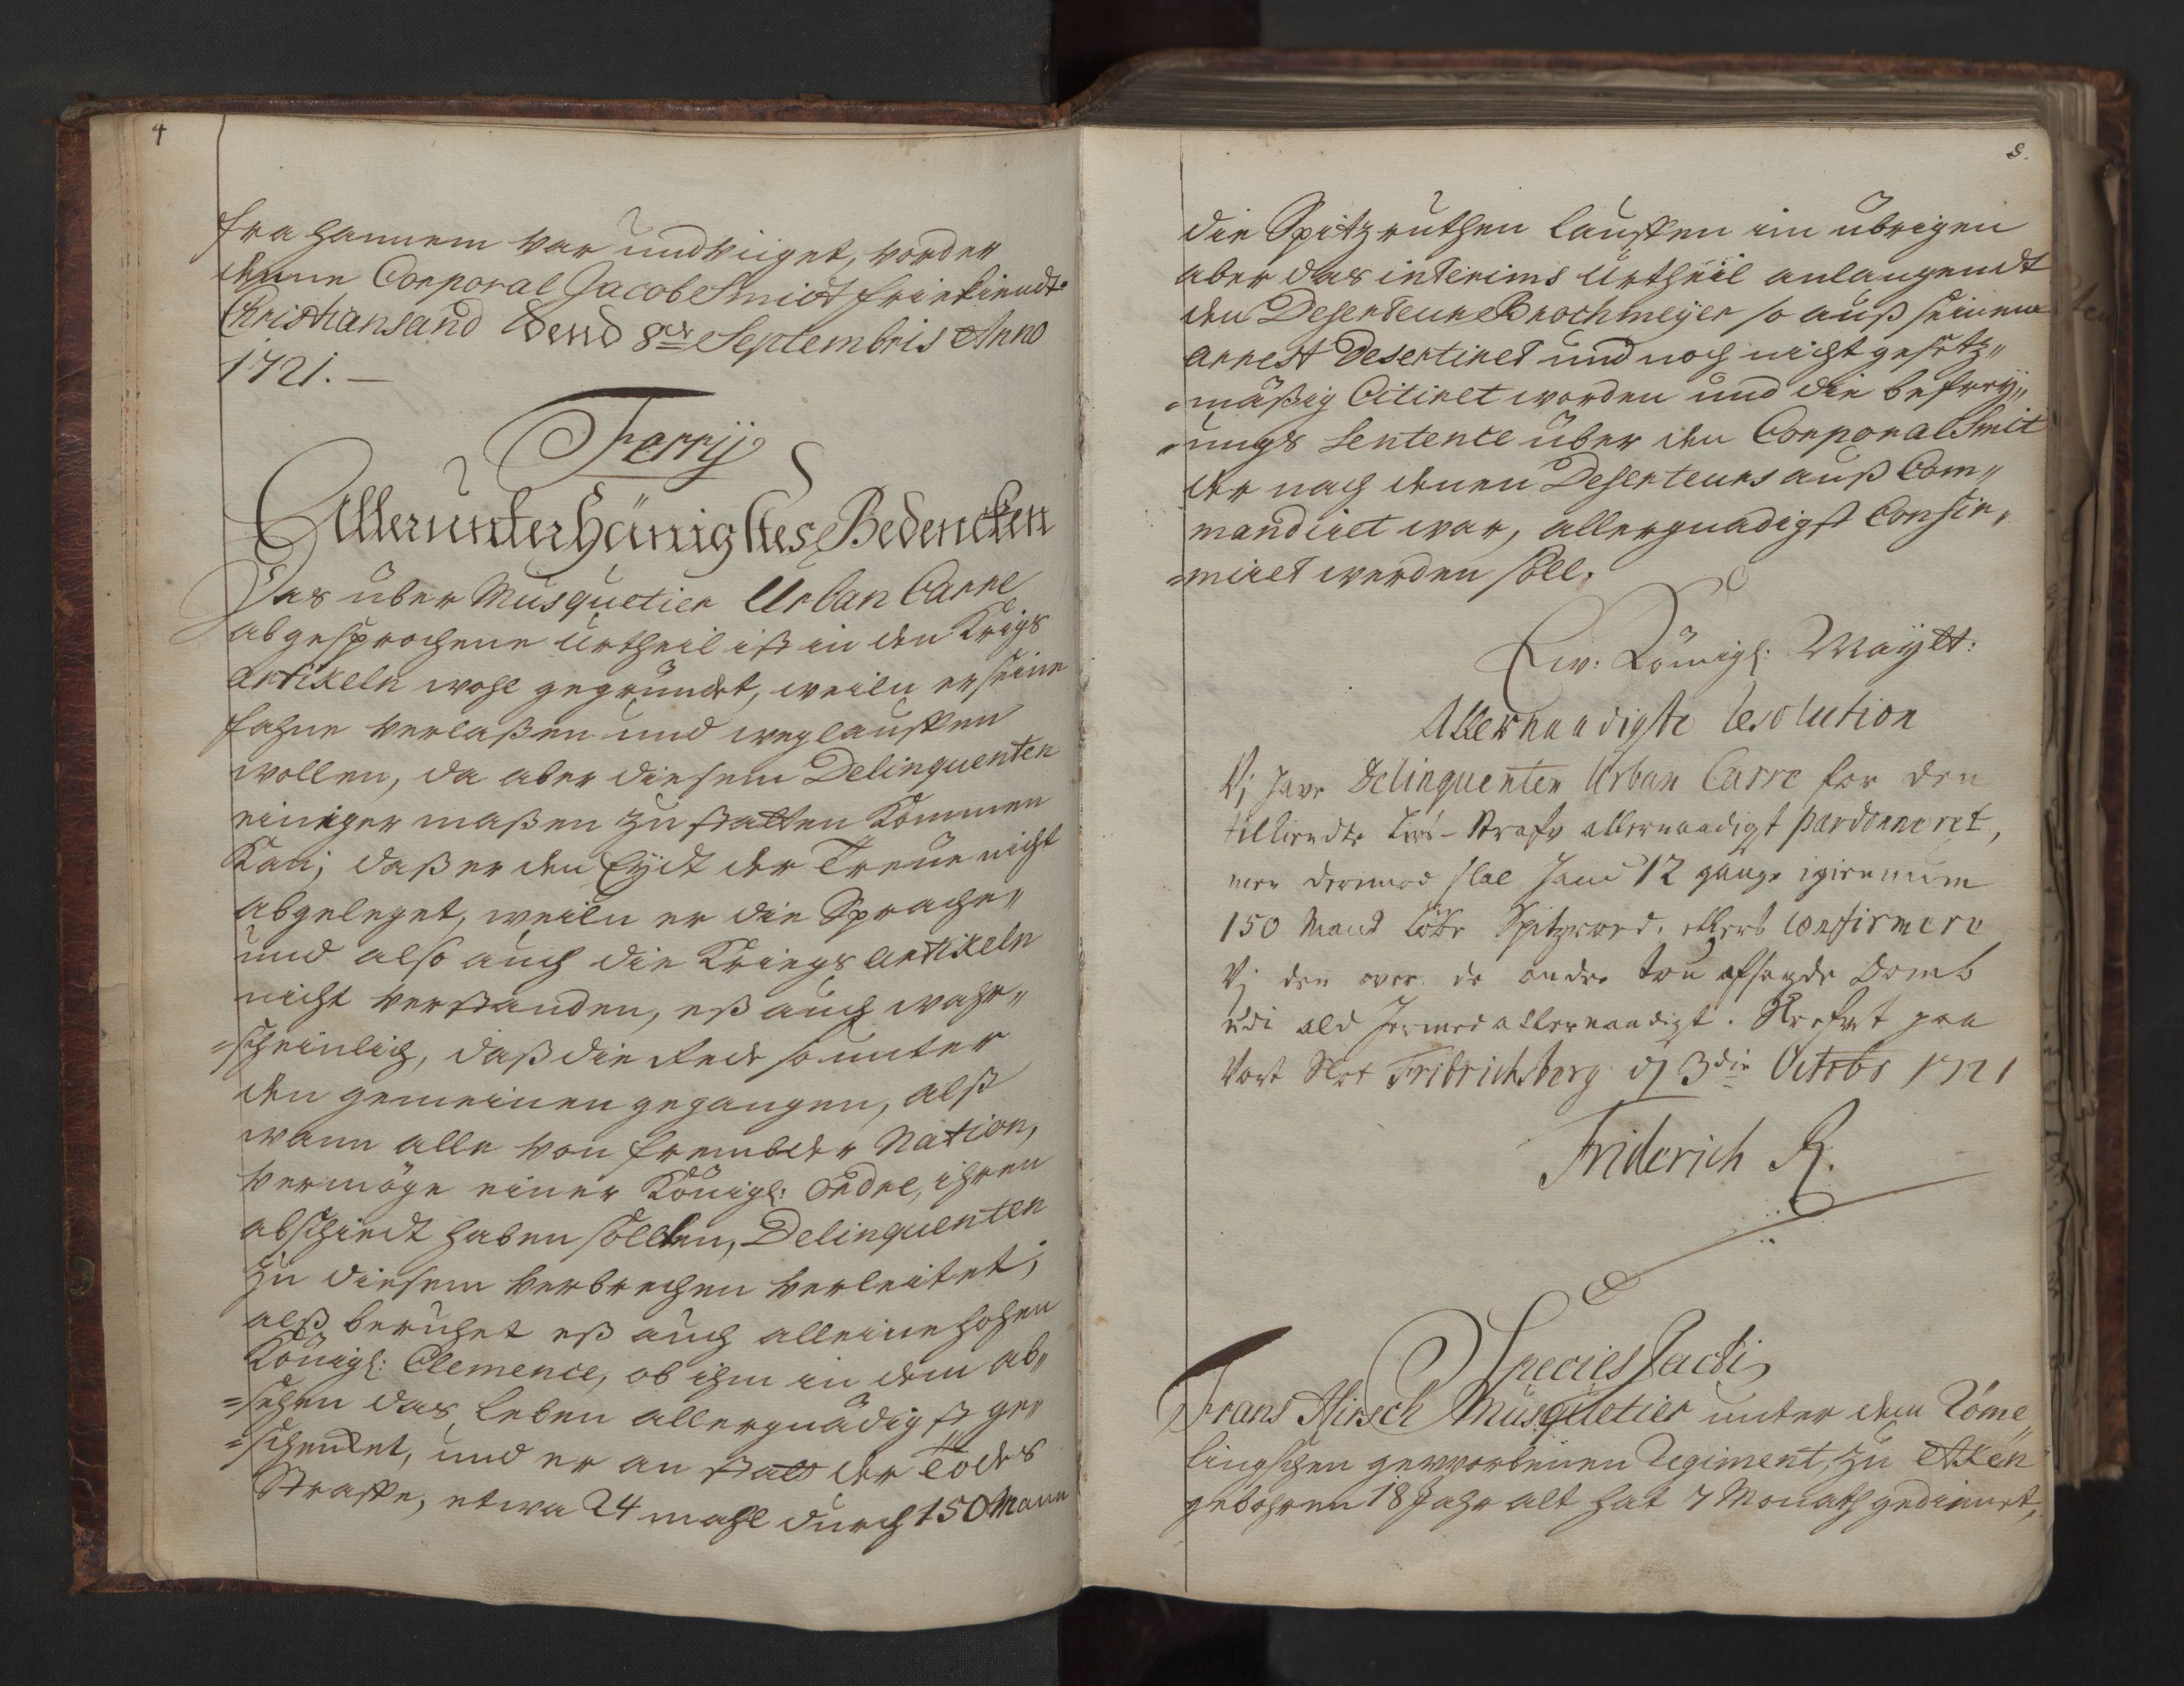 4
fra hannem var undviiget, vorder
denne Corporal Jacob Smidt friekiendt.
Christiansand Dend 8de Septembris Anno
1721.—
Ferrij
Allerunterhänigstes Bedencken
Das über Musquetier Urban Carre
abgesprochene Urtheil ist in den Krigs
artikeln wohl gegründet, weiln er seine
fahne verlaßen und weglauffen
wollen, da aber diesem Delinquenten
einiger maßen zu statten kommen
kan; daß er den Eydt der Treüe nicht
abgeleget, weiln er die Sprache"
und also auch die Kriegs artikeln
nicht verstanden, eß auch wahr"
=scheinlich, daß die Rede so unter
den gemeinen gegangen, alß
wann alle von frembder Nation,
vermöge einer Königl: Ordre, ihren
abschiedt haben sollten, Delinquenten
zu diesem verbrechen verleitet;
alß beruhet eß auch alleine hohen
Königl: Clemence, ob ihm in dem ab"
=sehen das leben allergnädigst ge"
=schencket, und er an statt der Todes
Straffe, etwa 24 mahl durch 150 Mann
5.
die Spitzruthen lauffen im übrigen
aber das interims Urtheil anlangendt
den Deserteur Brochmeyer so auß seinem
arrest Desertiret und noch nicht gesetz"
=mäßig Citiret worden und die befrey"
"ungs Sentence über den Corporal Smit
der nach denen Deserteurs auß Com"
mandiret war, allergnadigst Confir"
=miret werden soll.
Ew: Königl: Mayett:
Allernaadigste Resolution
Vj have Delinquenten Urban Carre for den
tilkiendte Lius-Straf allernaadigst pardonneret,
men derimod skal hand 12 gange igiennem
150 Mand løbe Spitzrod. ellers confirmere
Vj den over de andre too afsagde Domb
udi ald hermed allernaadigst. Skrefvet paa
Vort Slot Fridrichsberg dj 3die Octobr 1721
Friderich R.
Species Facti
Frans Hirsch Musquetier unter dem Röme"
lingschen gevvorbenen Regiment, zu Aken
gebohren 18 Jahr alt hat 7 Monath gedienet,